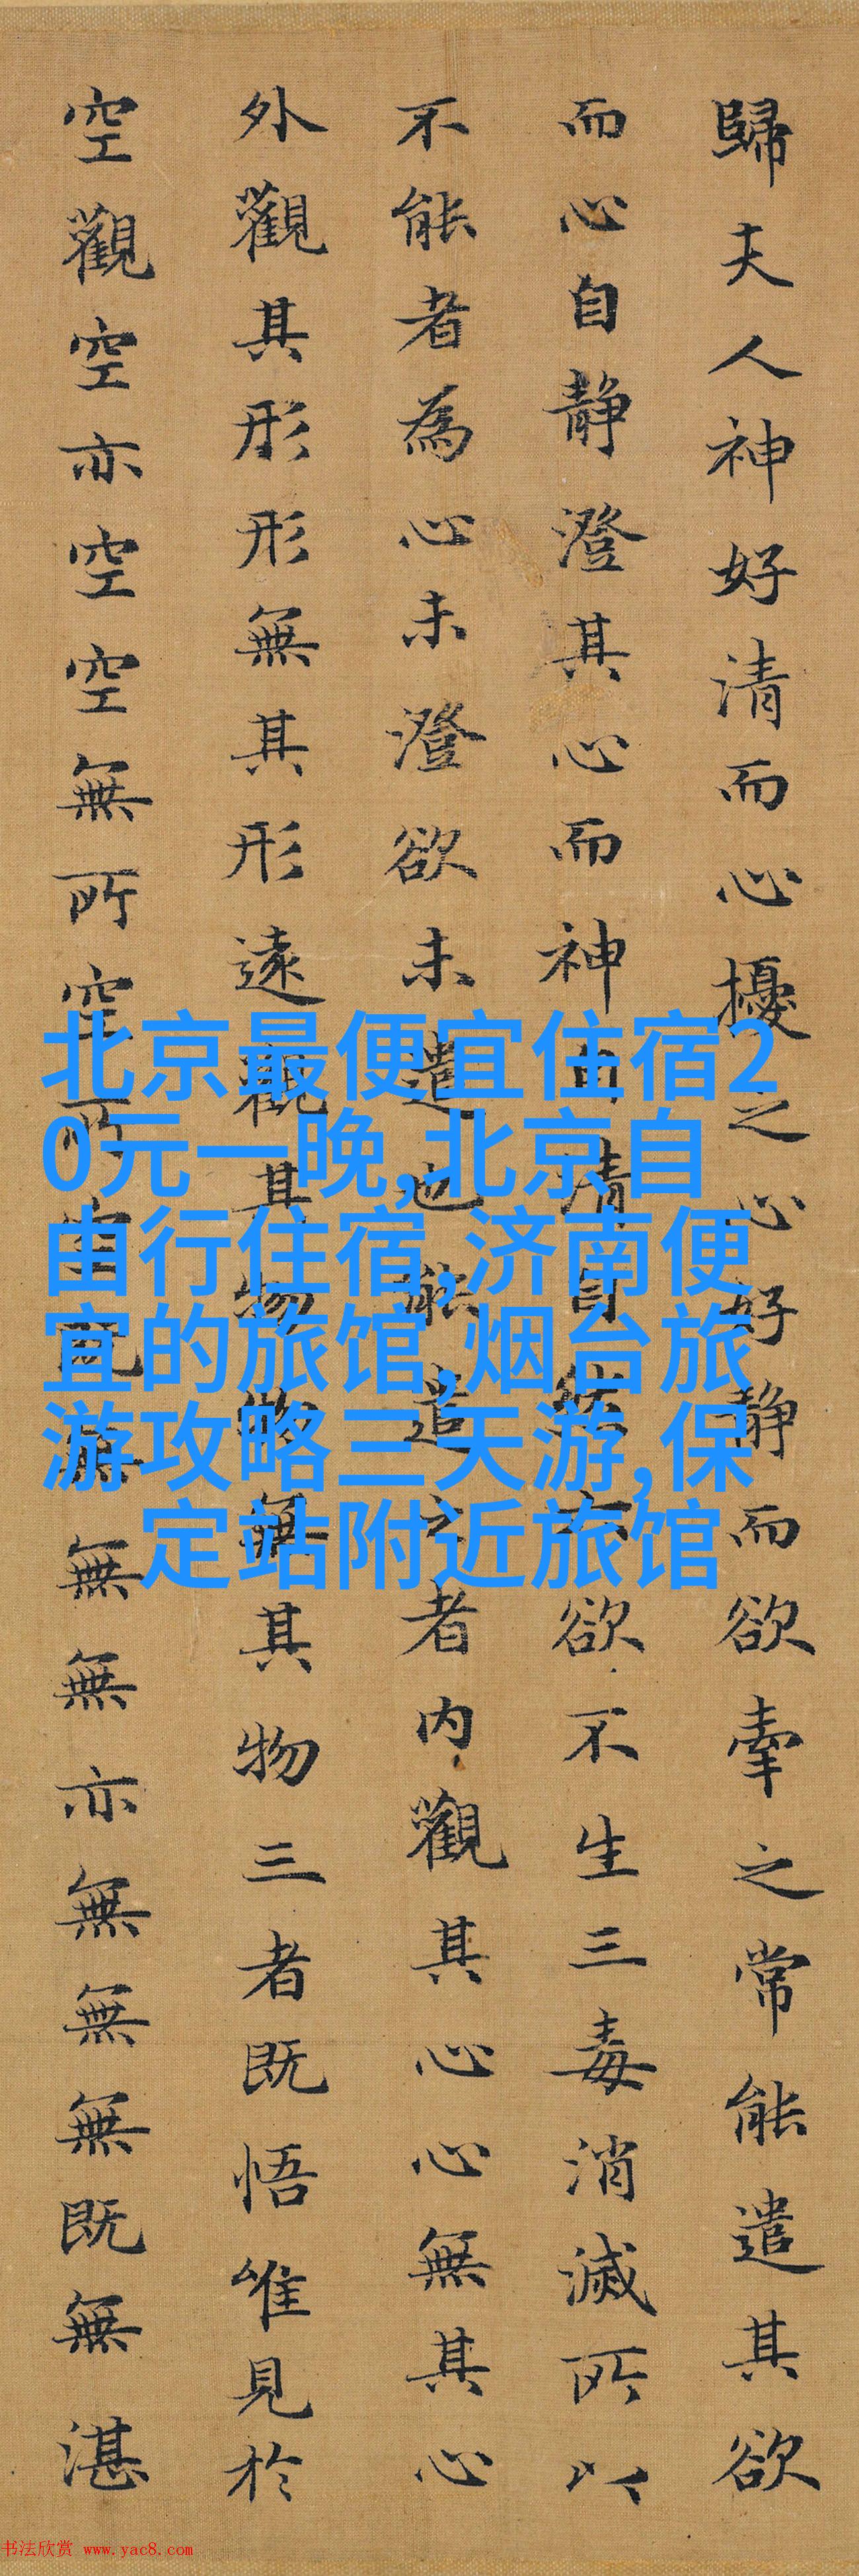 歸夫人神好清而心擾之心好静而欲牽之常能遣其欲
而心自静澄其心而神自清自然六欲不生三毒消滅所以
不能者為心未澄欲未遣也能遣之者内觀其心心無其心
外觀其形形無其形遠觀其物物無其物三者既悟唯見於
空觀空亦空空無所空所空既無無無亦無無無既無湛
北京最便宜住宿2
0元一晚,北京自
由行住宿,济南便
宜的旅馆,烟台旅
游攻略三天游,保
定站附近旅馆
书法欣赏 www.yac8.com